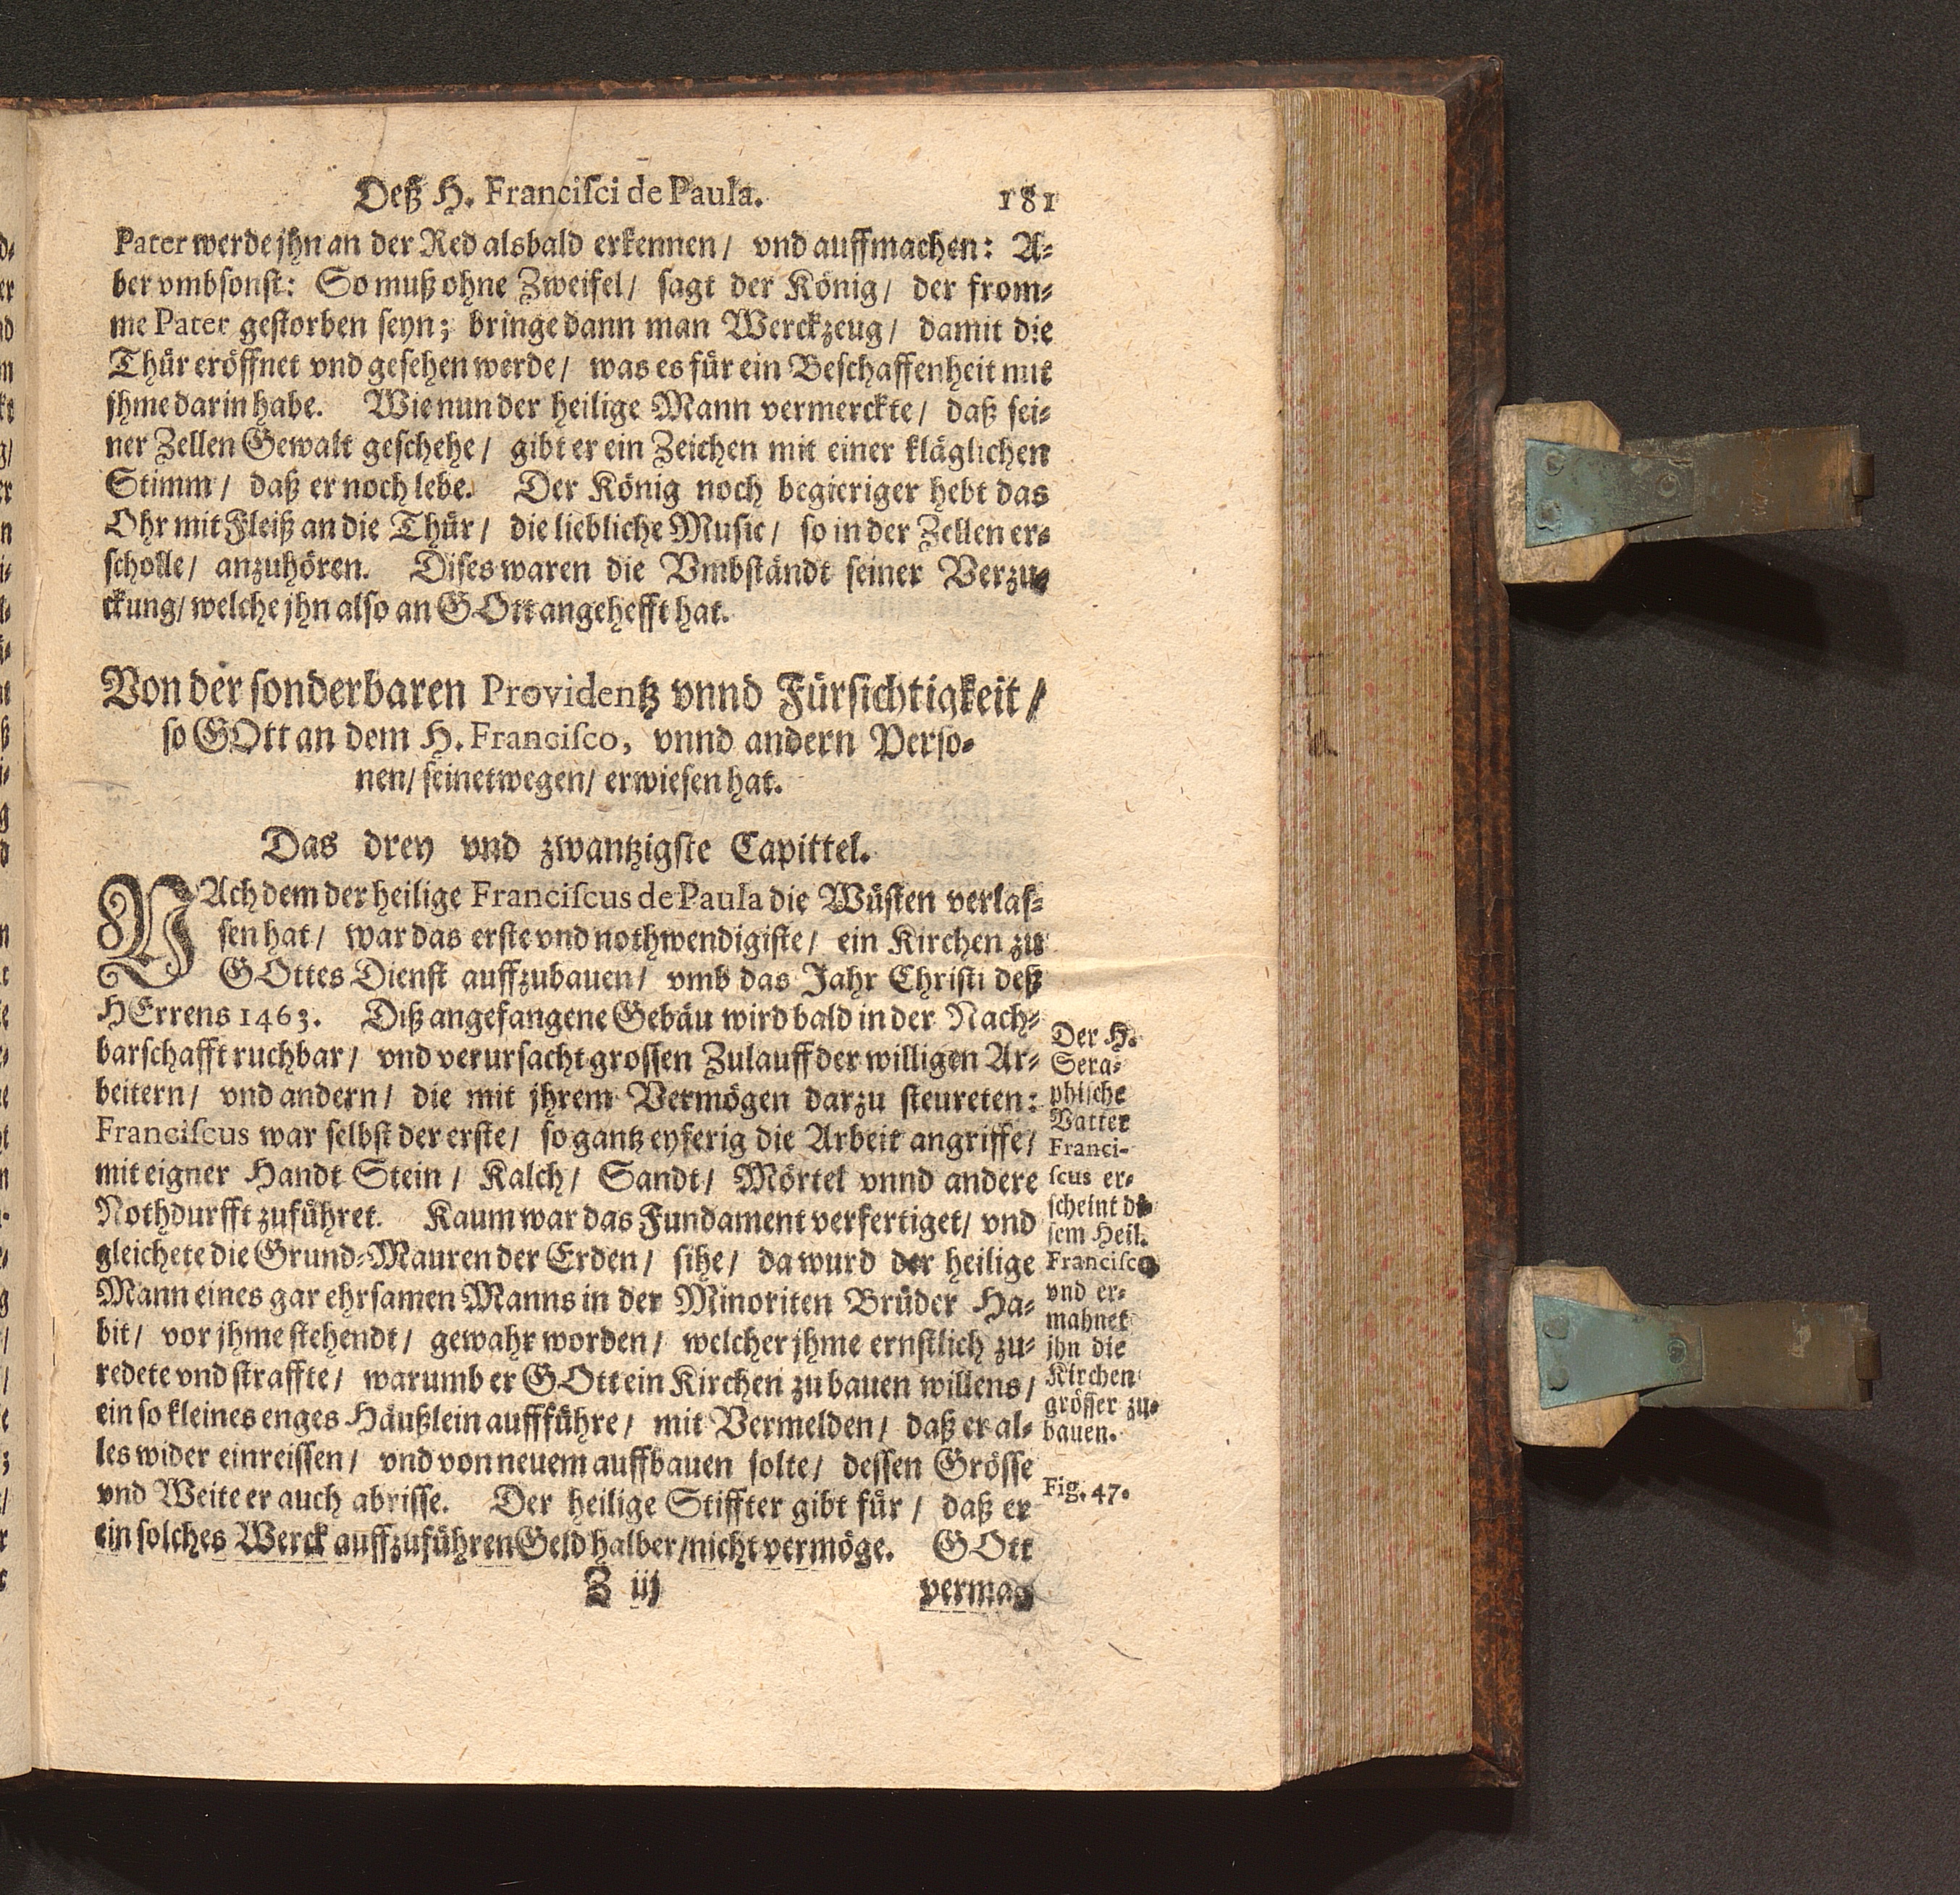 Deß H. Franciſci de Paula. 181
Pater werde jhn an der Red alsbald erkennen / vnd auffmachen: A-
ber vmbſonſt: So muß ohne Zweifel / ſagt der König / der from-
me Pater geſtorben ſeyn; bringe dann man Werckzeug / damit die
Thür eröffnet vnd geſehen werde / was es für ein Beſchaffenheit mit
jhme darin habe. Wie nun der heilige Mann vermerckte / daß ſei-
ner Zellen Gewalt geſchehe / gibt er ein Zeichen mit einer kläglichen
Stimm / daß er noch lebe. Der König noch begieriger hebt das
Ohr mit Fleiß an die Thür / die liebliche Muſic / ſo in der Zellen er-
ſcholle / anzuhören. Diſes waren die Vmbſtändt ſeiner Verzu-
ckung / welche jhn alſo an GOtt angehefft hat.
Von der ſonderbaren Providentz vnnd Fürſichtigkeit /
ſo GOtt an dem H. Franciſco, vnnd andern Perſo-
nen / ſeinetwegen / erwieſen hat.
Das drey vnd zwantzigſte Capittel.
NAch dem der heilige Franciſcus de Paula die Wüſten verlaſ-
ſen hat / war das erſte vnd nothwendigiſte / ein Kirchen zu
GOttes Dienſt auffzubauen / vmb das Jahr Chriſti deß
HErrens 1463. Diß angefangene Gebäu wird bald in der Nach-
barſchafft ruchbar / vnd verurſacht groſſen Zulauff der willigen Ar-
beitern / vnd andern / die mit jhrem Vermögen darzu ſteureten:
Franciſcus war ſelbſt der erſte / ſo gantz eyferig die Arbeit angriffe /
mit eigner Handt Stein / Kalch / Sandt / Mörtel vnnd andere
Nothdurfft zuführet. Kaum war das Fundament verfertiget / vnd
gleichete die Grund-Mauren der Erden / ſihe / da wurd der heilige
Mann eines gar ehrſamen Manns in der Minoriten Brüder Ha-
bit / vor jhme ſtehendt / gewahr worden / welcher jhme ernſtlich zu-
redete vnd ſtraffte / warumb er GOtt ein Kirchen zu bauen willens /
ein ſo kleines enges Häußlein auffführe / mit Vermelden / daß er al-
les wider einreiſſen / vnd von neuem auffbauen ſolte / deſſen Gröſſe
vnd Weite er auch abriſſe. Der heilige Stiffter gibt für / daß er
ein ſolches Werck auffzuführen Geld halber / nicht vermöge. GOtt
Z iij vermag
Der H.
Sera-
phiſche
Vatter
Franci-
ſcus er-
ſcheint di-
ſem Heil.
Franciſco
vnd er-
mahnet
jhn die
Kirchen
gröſſer zu-
bauen.
Fig. 47.